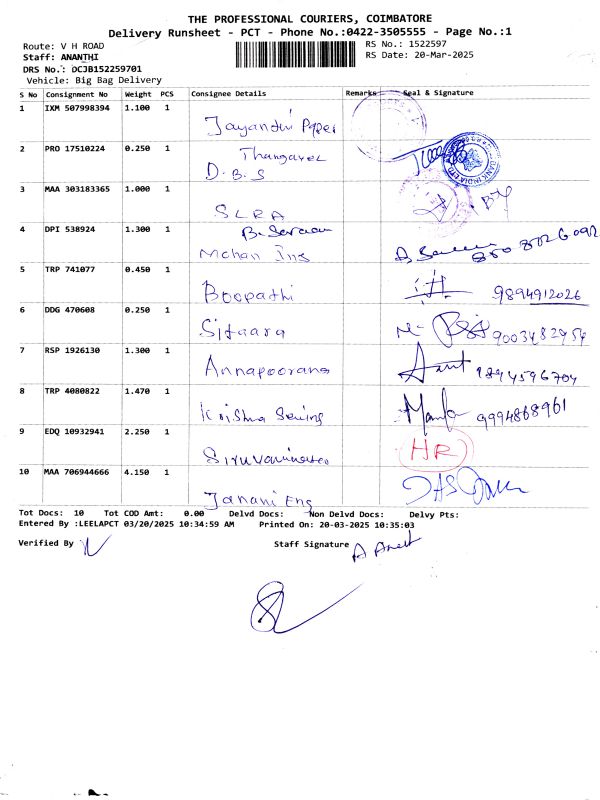 THE PROFESSIONAL COURIERS, COIMBATORE
Delivery Runsheet - PCT - Phone No.:0422-3505555 - Page No.:1
Route: V H ROAD RS No.: 1522597
Staff: ANANTHI RS Date: 20-Mar-2025
DRS No.: DCJB152259701
Vehicle: Big Bag Delivery
S No Consignment No Weight PCS Consignee Details Remarks Seal & Signature
1 IXM 507998394 1.100 1
Jayanthi Paper
2 PRO 17510224 0.250 1 Thangavel
D.B.S
3 MAA 303183365 1.000 1
SLRA
4 DPI 538924 1.300 1 B. Saravan
Mohan Ing
5 TRP 741077 0.450 1
Boopathi 9894912026
6 DDG 470608 0.250 1
Sitaara 9003482954
7 RSP 1926130 1.300 1
Annapoorana 9894596704
8 TRP 4080822 1.470 1
Krishna Sewing 9994868961
9 EDQ 10932941 2.250 1 HR
10 MAA 706944666 4.150 1
Janani Eng
Tot Docs: 10 Tot COD Amt: 0.00 Delvd Docs: Non Delvd Docs: Delvy Pts:
Entered By :LEELAPCT 03/20/2025 10:34:59 AM Printed On: 20-03-2025 10:35:03
Verified By Staff Signature